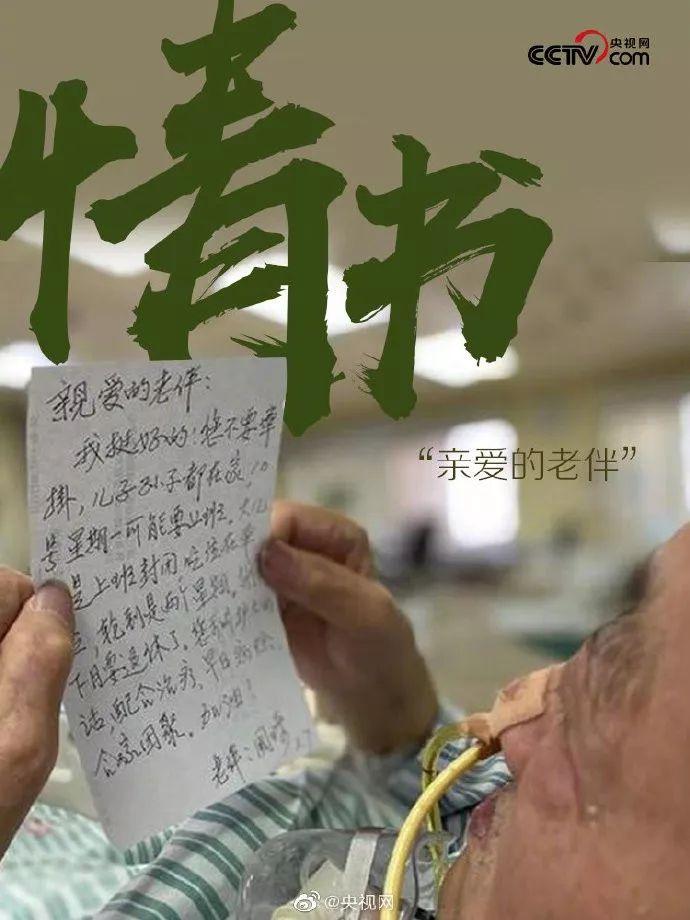 CCTV 央视网
com
情书
“亲爱的老伴”
親爱的老伴：
我挺好的！您不要牵
挂，儿子孙子都在家，10
号星期一可能要上班。大
是上班封闭吃住在单
下月要退休了。您
话，配合治疗，早日
合家团聚。加油！
老伴：
@央视网